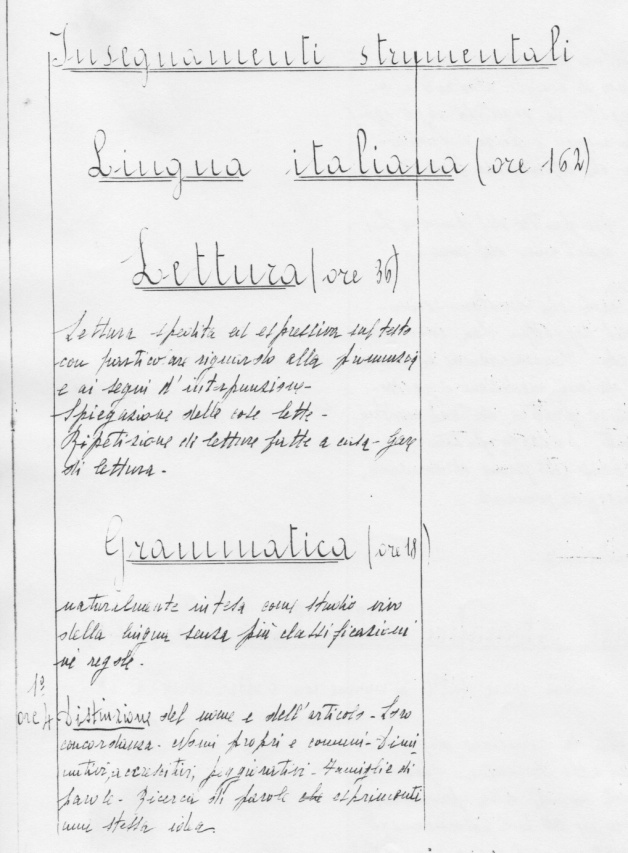 Insegnamenti strumentali
Lingua italiana (ore 162)
Lettura (ore 36)
Lettura spedita ed espressiva sul testo
con particolare riguardo alla pronuncia
e ai segni d'interpunzione -
Spiegazione delle cose lette -
Ripetizione di letture fatte a casa - Gare
di lettura -
Grammatica (ore 18)
naturalmente intesa come studio vivo
della lingua senza più classificazioni
nè regole -
1º
ore 4
Distinzione del nome e dell'articolo - Loro
concordanza - Nomi propri e comuni - Dimi
nutivi, accrescitivi, peggiorativi - Famiglie di
parole - Ricerca di parole che esprimenti
una stessa idea.